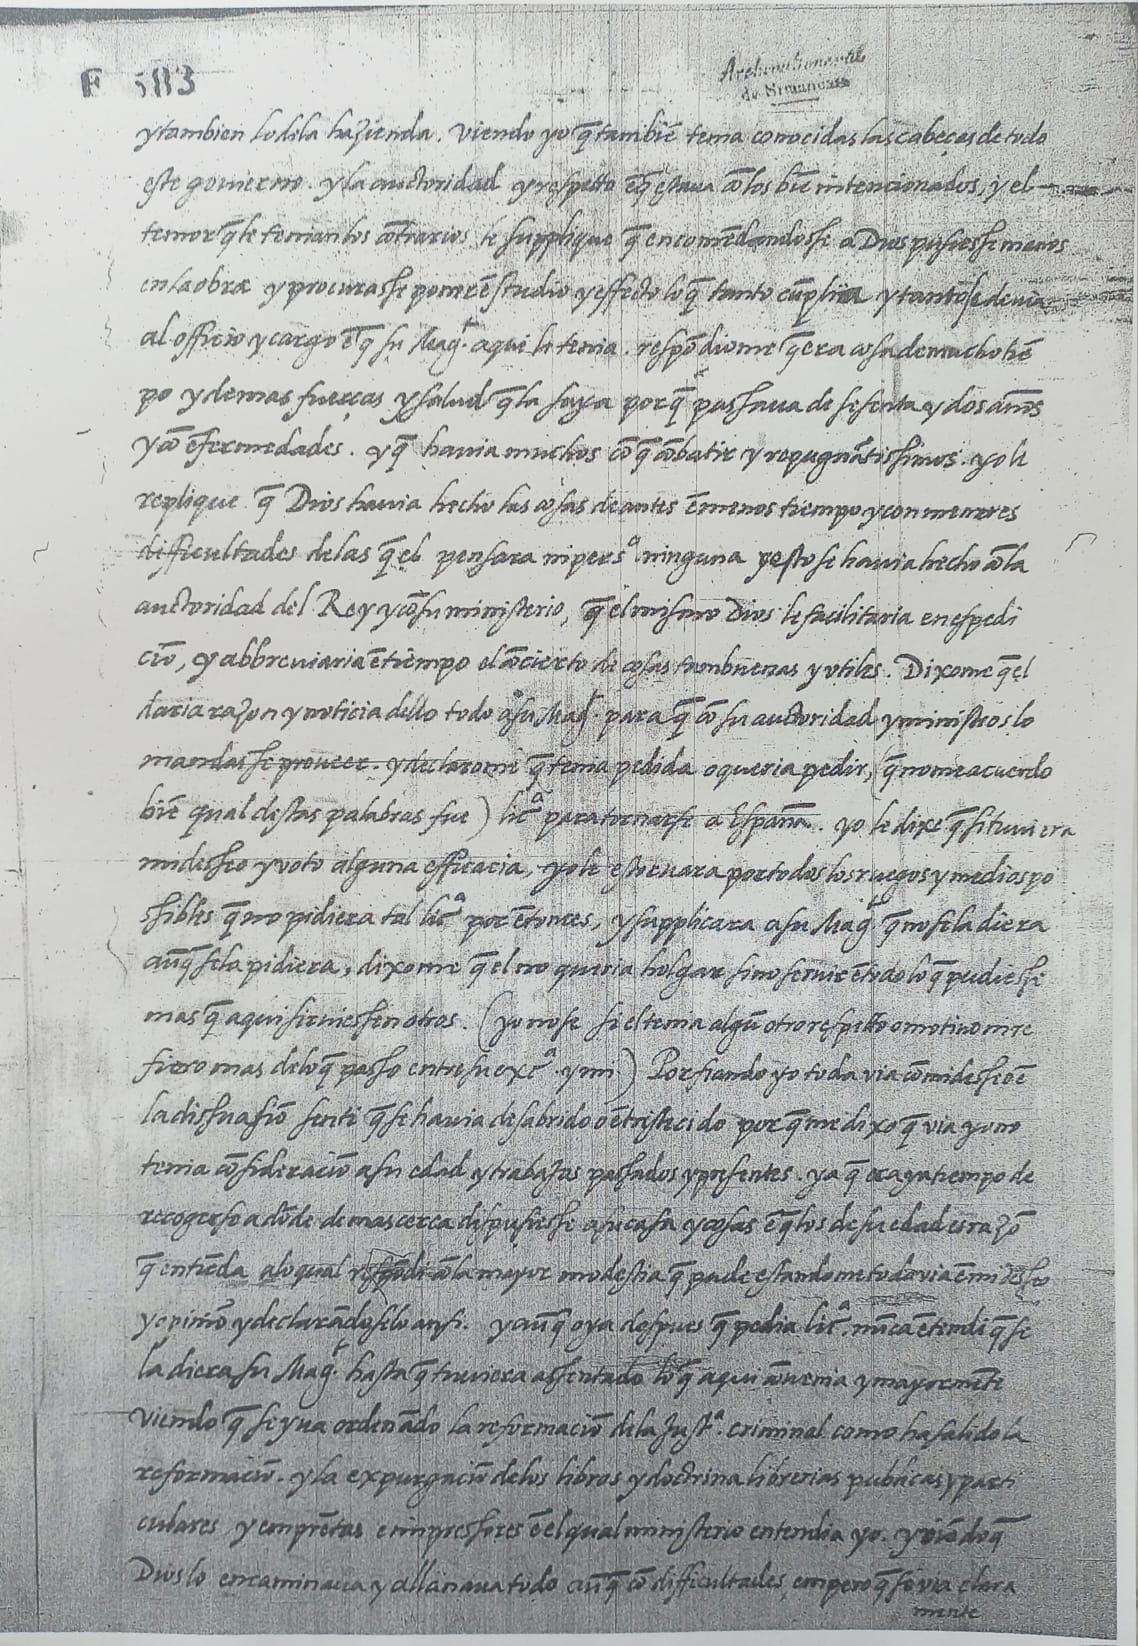 F 583
Archivo General
de Simancas
y tambien lo dela hazienda. viendo yo q̃ tambiē tenia conocidas las cabeças de todo
este gouierno. y la auctoridad y respetto ēq̃ estaua cōlos biē intencionados, y el
temor q̃ le tenian los cōtrarios le supplique q̃ encomēdandosse a Dios pusiesse manos
enla obra y procurasse poner ē studio y effecto lo q̃ tanto cūplia y tanto se deuia
al officio y cargo ē q̃ su Mag.ᵗ aqui le tenia. respōdiome q̃ era cosa de mucho tiē
po y de mas fuerças y salud q̃ la suya porq̃ passaua de sesenta y dos años
y cō ēfermedades. y q̃ hauia muchos cō q̃ cōbatir y repugnātissimos. yo le
replique q̃ Dios hauia hecho las cosas de antes ē menos tiempo y con menores
difficultades de las q̃ el pensara ni persᵃ ninguna y esto se hauia hecho cōla
auctoridad del Rey y cō su ministerio, q̃ el mismo Dios le facilitaria en espedi
ciō, y abbreuiaria ē tiempo el cōcierto de cosas tan buenas y vtiles. Dixome q̃ el
daria razon y noticia dello todo a su Mag.ᵗ para q̃ cō su auctoridad y ministros lo
mandasse proueer. y declarome q̃ tenia pedida o queria pedir, (q̃ no me acuerdo
biē qual destas palabras fue) licᵃ para tornarse a España. yo le dixe q̃ si tuuiera
mi desseo y voto alguna efficacia, yo le estoruara por todos los ruegos y medios po
sibles q̃ no pidiera tal licᵃ por ētonces, y supplicara a su Mag.ᵗ q̃ no se la diera
aūq̃ se la pidiera, dixome q̃ el no queria holgar sino seruir ē todo lo q̃ pudiesse
mas q̃ aqui siruiessen otros. (yo no se si el tenia algū otro respetto o motiuo ni re
fiero mas de lo q̃ passo entre su exᵃ. y mi) Porfiando yo toda via cō mi desseo ē
la dissuasiō senti q̃ se hauia desabrido o ētristecido por q̃ me dixo q̃ via yo no
tenia cōsideraciō a su edad y trabajos passados y presentes. ya q̃ era ya tiempo de
recogerse a dōde de mas cerca dispusiesse a su casa y cosas ē q̃ los de su edad es razō
q̃ entiēda alo qual respōdi cō la mayor modestia q̃ pude estandome toda via ē mi desseo
y opiniō y declarādoselo ansi. y aūq̃ oya despues q̃ pedia licᵃ. nūca ētendi q̃ se
la diera su Mag.ᵗ hasta q̃ tuuiera assentado lo q̃ aqui cōuenia y mayormēte
viendo q̃ se yua ordenādo la reformaciō dela Justᵃ. criminal como ha salido la
reformaciō. y la expurgaciō delos libros y doctrina librerias publicas y parti
culares y emprētas e impressores ē el qual ministerio entendia yo. y viēdo q̃
Dios lo encaminaua y allanaua todo aūq̃ cō difficultades, empero q̃ se via clara
mente